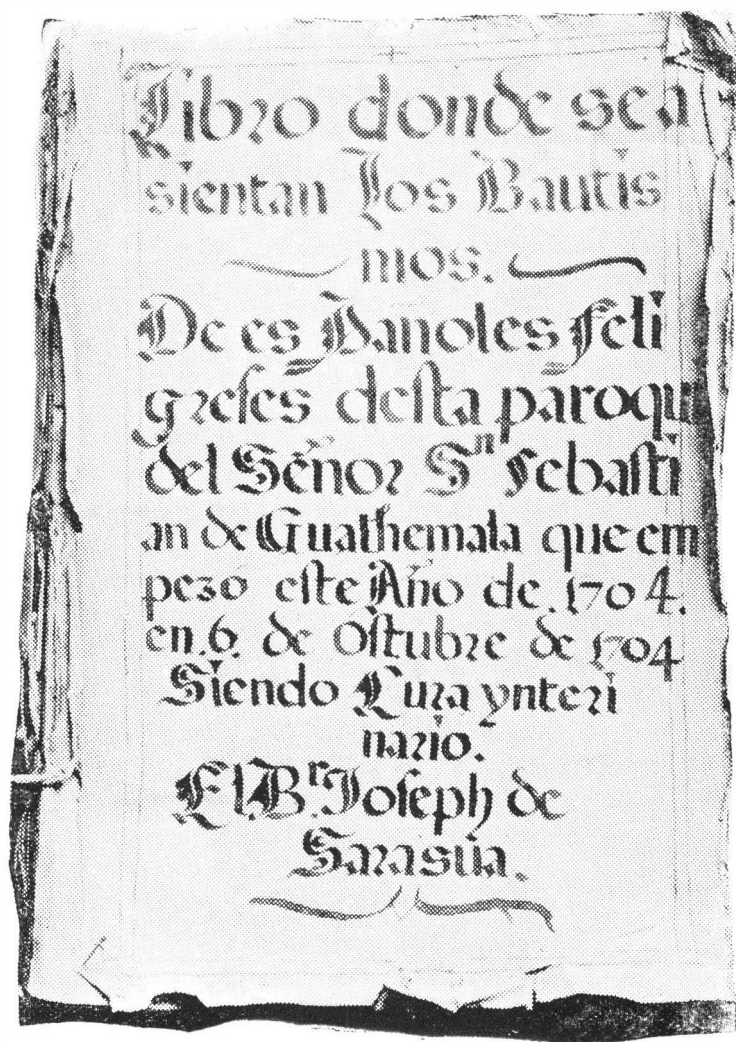 Libro donde sea
sientan los Bautis
mos.
De es Pañoles feli
greſes deſta paroqui
del Señor Sⁿ ſebaſti
an de Guathemala que em
pezó eſte Año de. 1704.
en. 6. de Oſtubre de 1704
Siendo Cura ynteri
nario.
El. B.ʳ Joſeph de
Sarasúa.